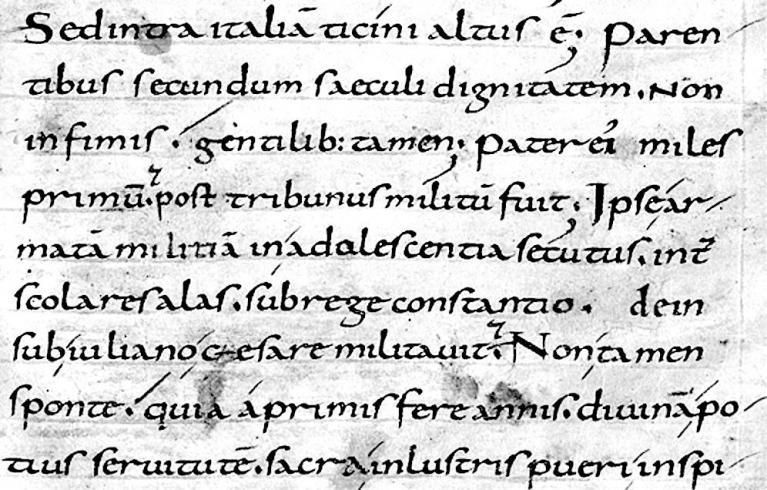 Sed intra italiā ticini altus ē; Paren-
tibus secundum saeculi dignitatem. Non
infimis. gentilib: tamen; Pater ei miles
primū. post tribunus militū fuit; Ipse ar-
matā militiā in adolescentia secutus. int̄
scolares alas. sub rege constantio. dein
sub iuliano cęsare militauit. Non tamen
sponte. quia a primis fere annis. diuinā po-
tius seruitutē. sacra inlustris pueri inspi-